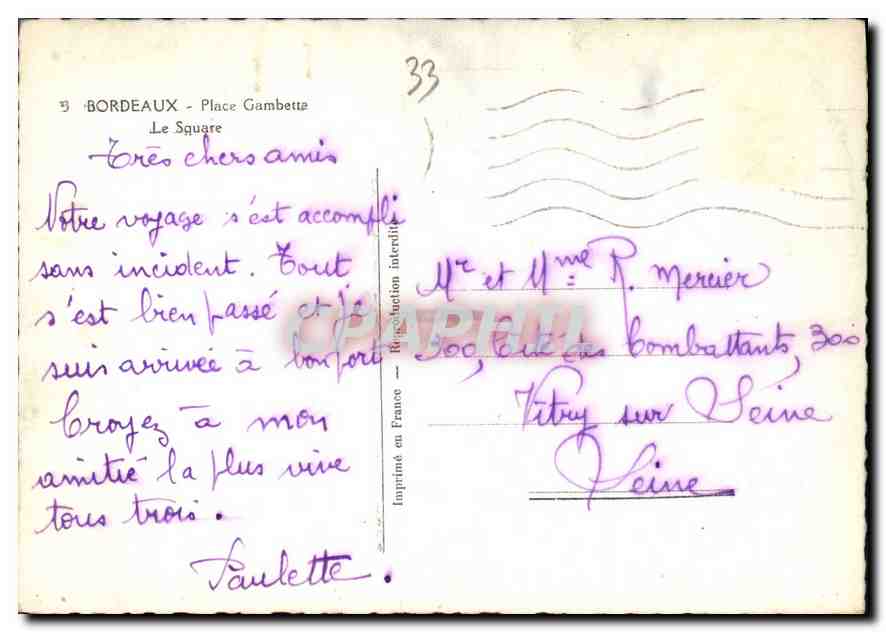 33
5 BORDEAUX - Place Gambetta
Le Square
Très chers amis
Notre voyage s'est accompli
sans incident. Tout
s'est bien passé et je
suis arrivée à bon port
Croyez à mon
amitié la plus vive
tous trois.
Paulette.
Imprimé en France — Reproduction interdite
CPAPHIL
Mr et Mme R. Mercier
300, Cité des Combattants, 300
Vitry sur Seine
Seine